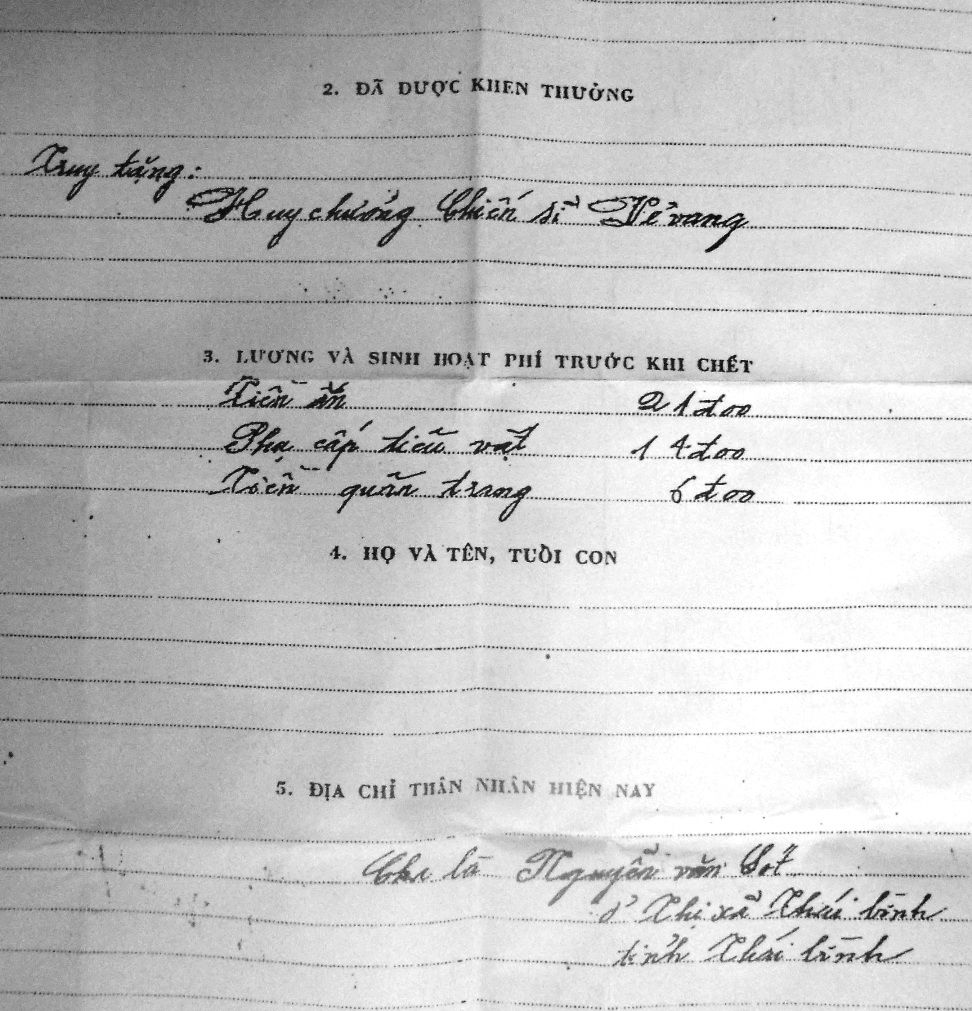 2. ĐÃ DƯỢC KHEN THƯỞNG
Truy tặng:
Huy chương Chiến sĩ Vẻ vang
3. LƯƠNG VÀ SINH HOẠT PHÍ TRƯỚC KHI CHẾT
Tiền ăn 21đ00
Phụ cấp tiêu vặt 14đ00
Tiền quân trang 6đ00
4. HỌ VÀ TÊN, TUỔI CON
5. ĐỊA CHỈ THÂN NHÂN HIỆN NAY
Cha là Nguyễn văn
ở Thị xã Thái bình
tỉnh Thái bình